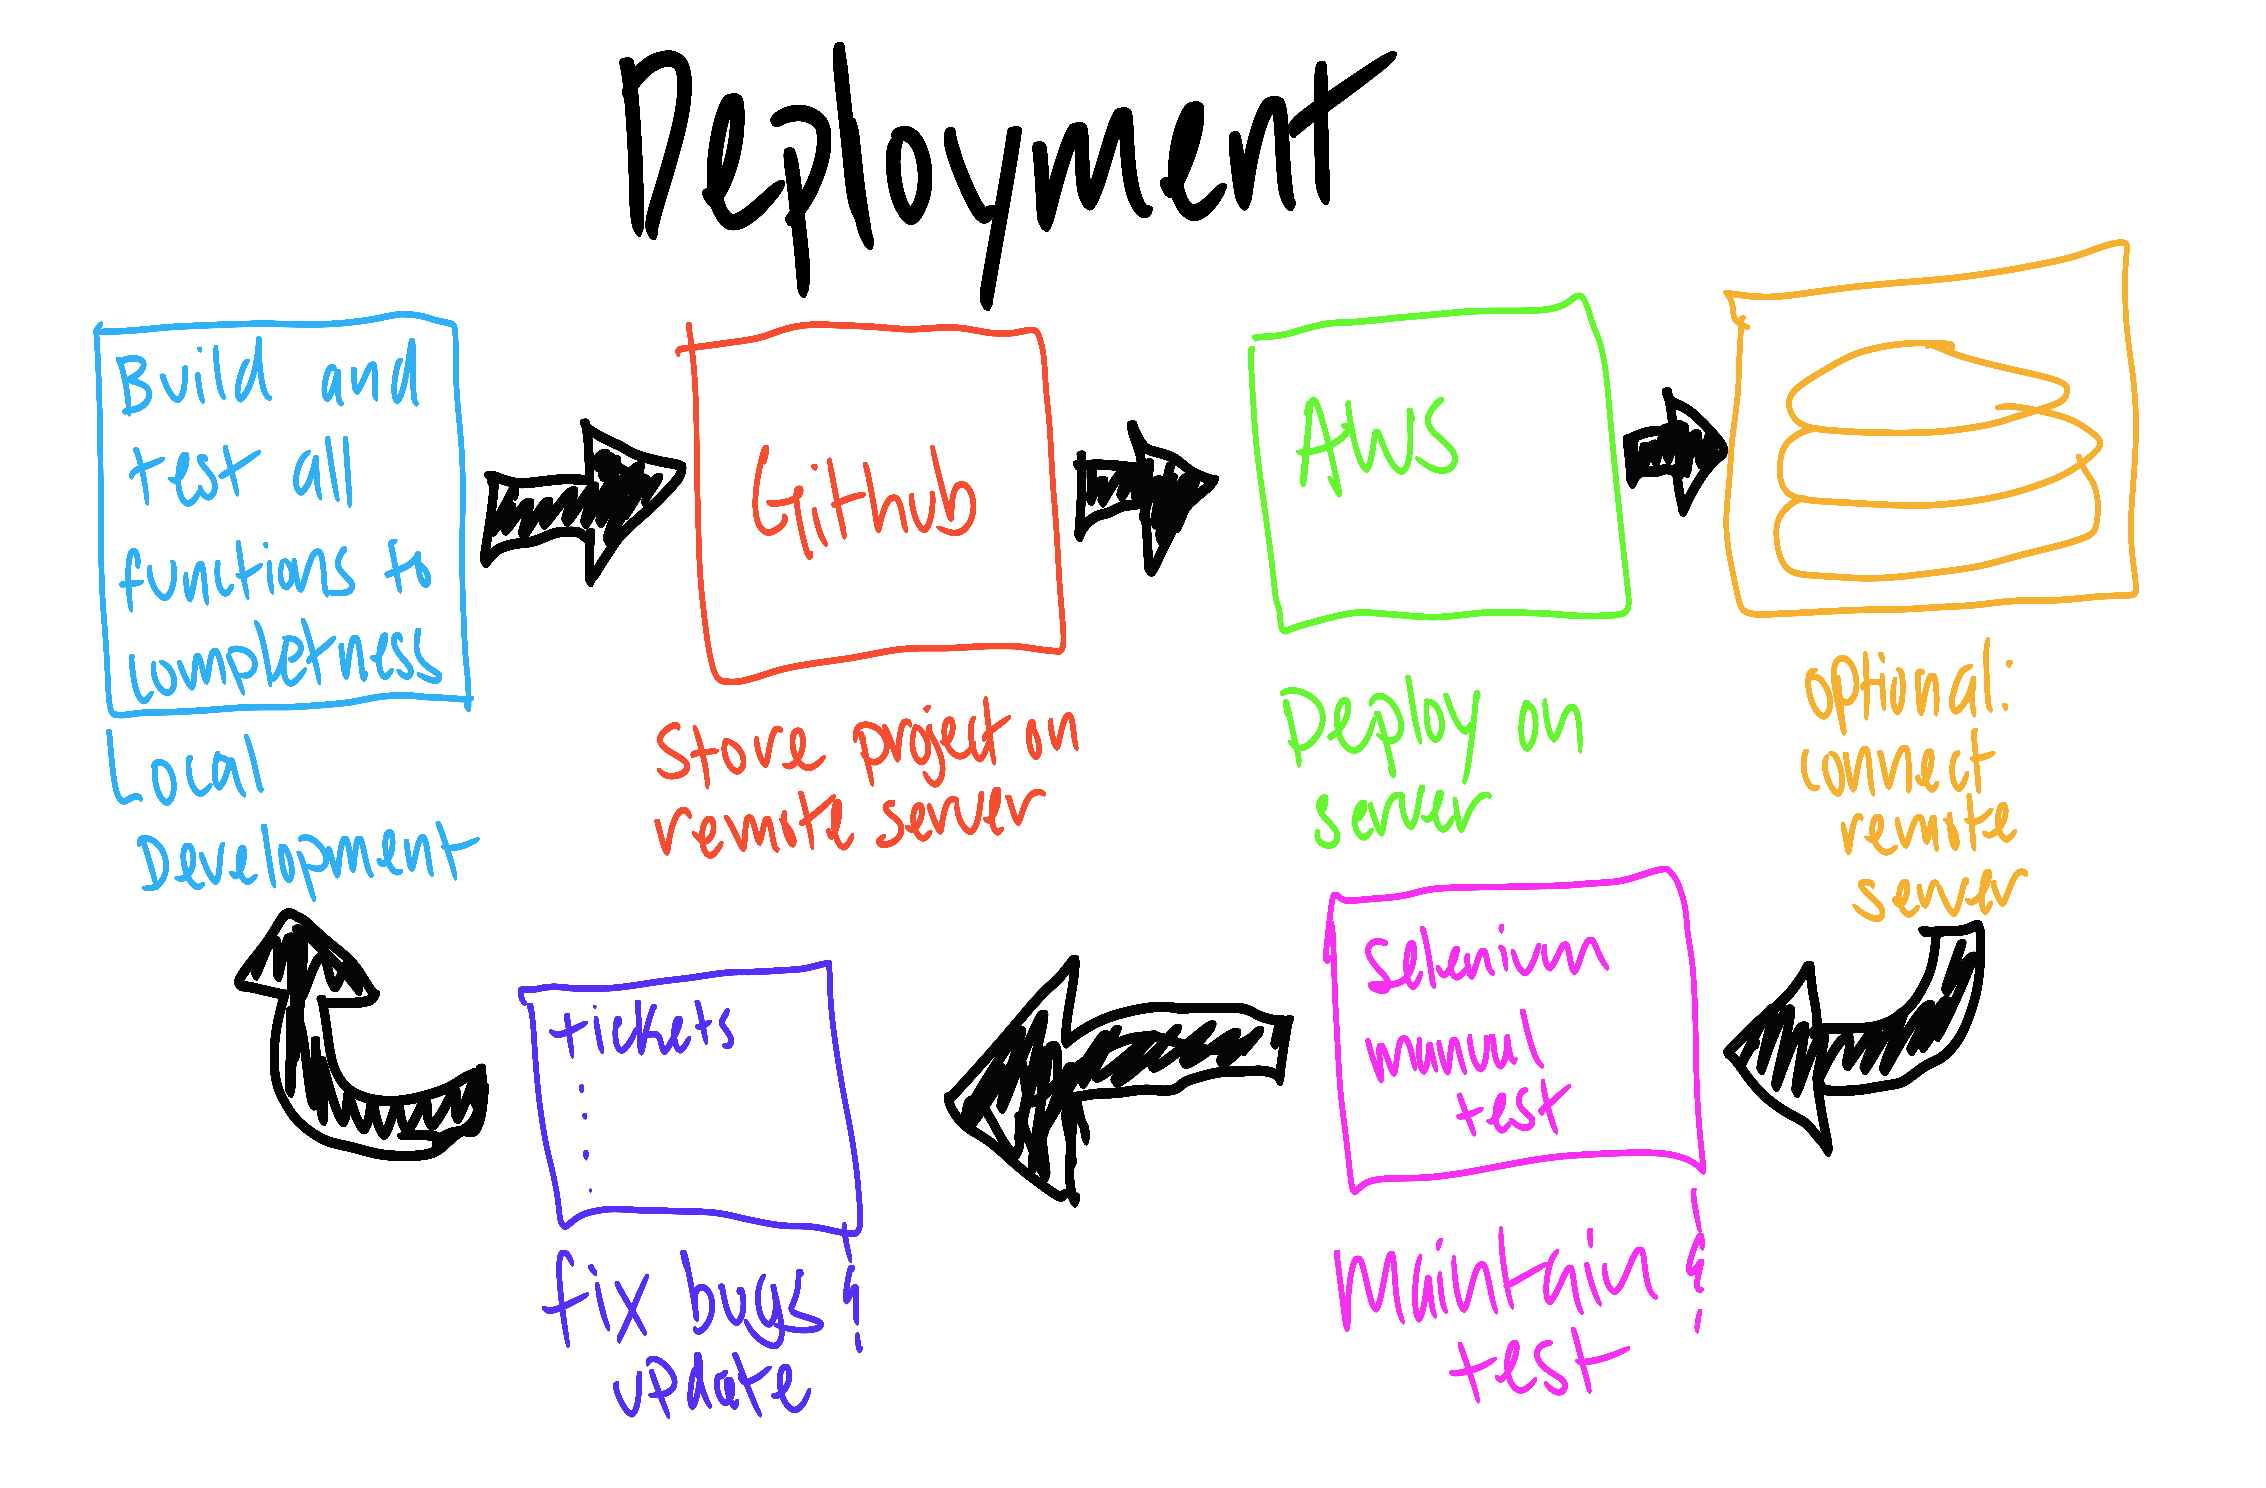 Deployment
Build and
test all
functions to
completness
Local
Development
Github
Store project on
remote server
AWS
Deploy on
server
optional:
connect
remote
server
Selenium
manual
test
Maintain &
test
tickets
fix bugs &
update